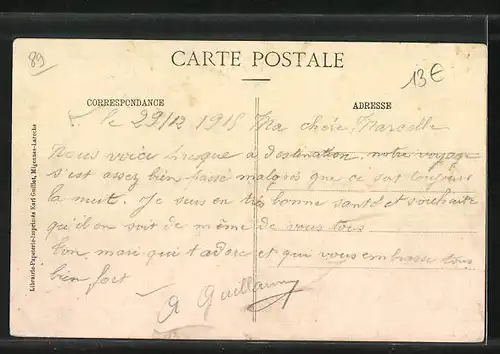 89
13€
CARTE POSTALE
CORRESPONDANCE
ADRESSE
Librairie-Papeterie-Imprimée Karl Guillot, Migennes-Laroche
le 29/12 1915 Ma chère Marcelle
Nous voici presque a destination, notre voyage
s'est assez bien passé malgrès que ce soit toujours
la nuit. Je suis en très bonne santé et souhaite
qu'il en soit de même de vous tous
Ton mari qui t'adore et qui vous embrasse tous
bien fort
A Guillaumy